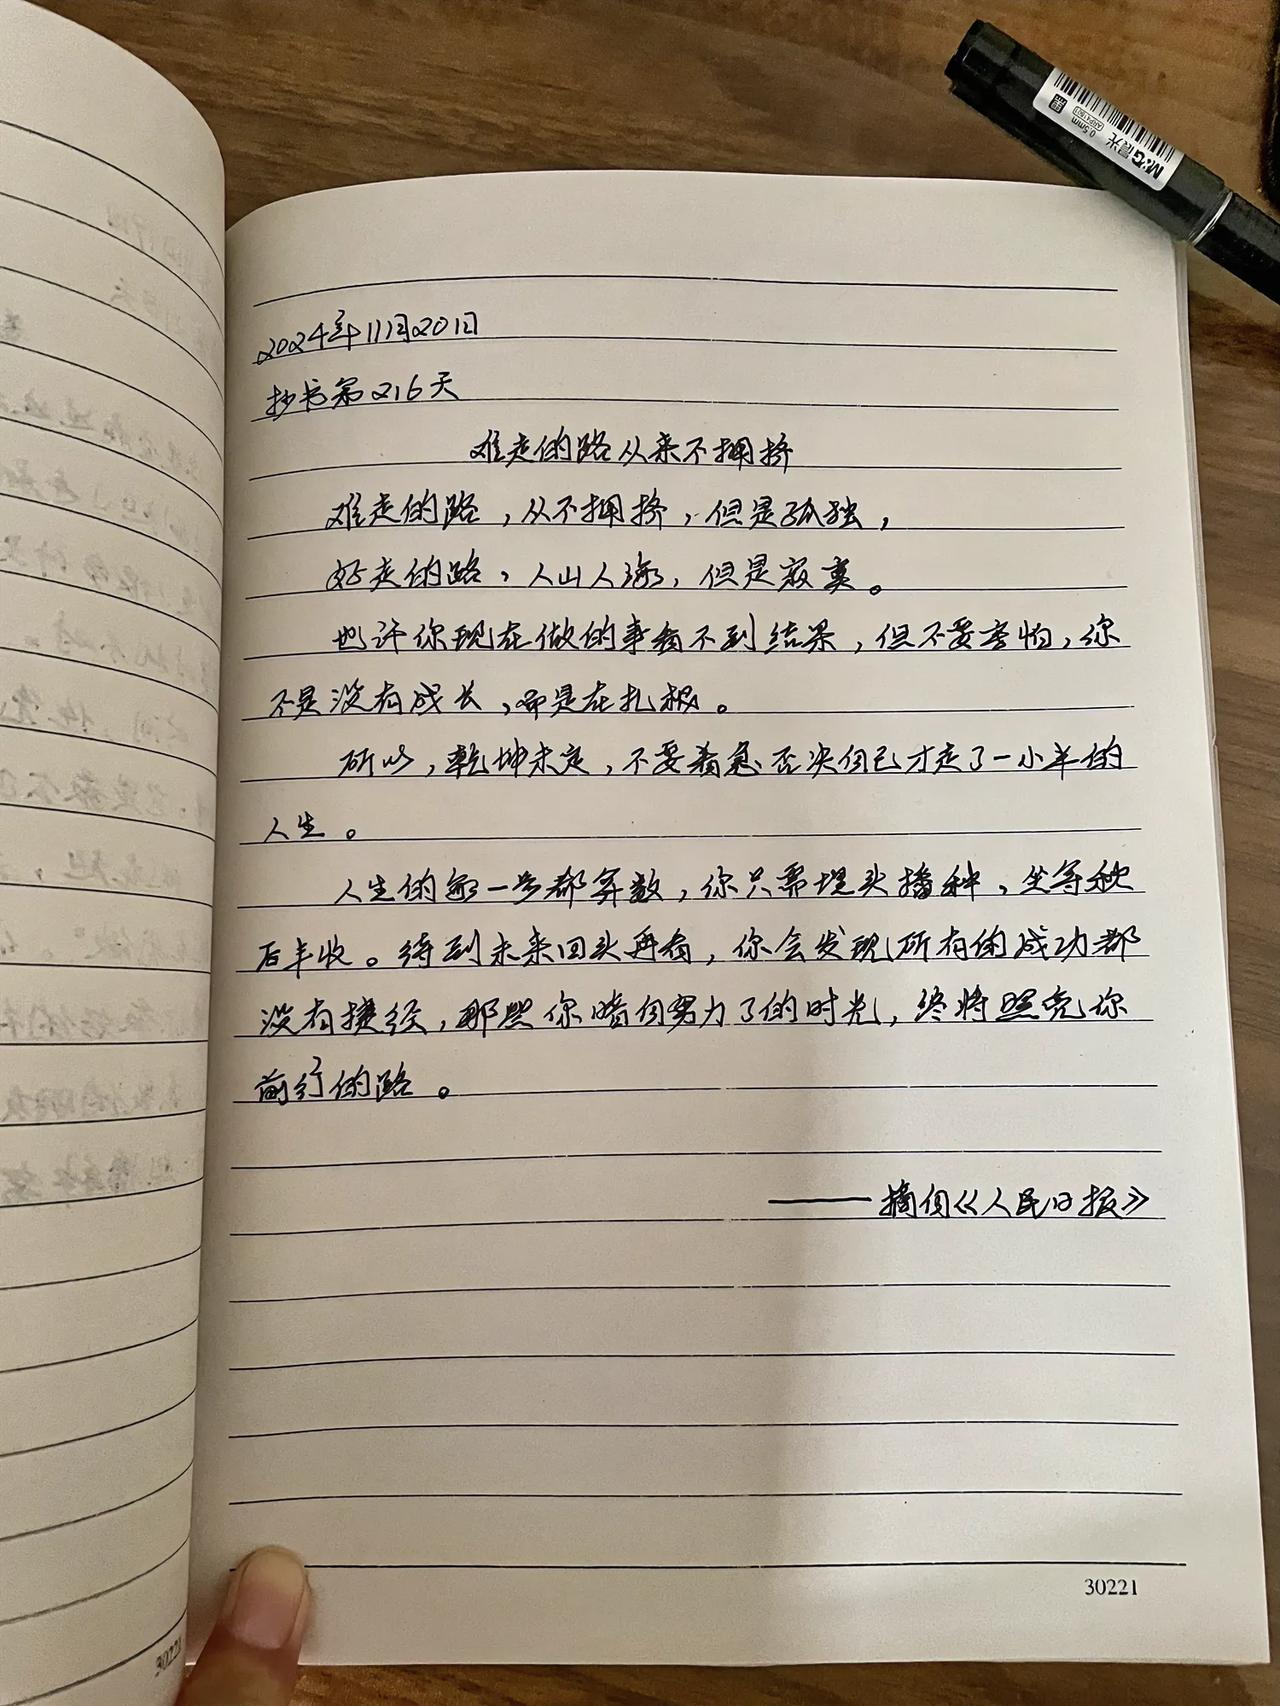 2024年11月20日
抄书第216天
难走的路从来不拥挤
难走的路，从不拥挤，但是孤独，
好走的路，人山人海，但是寂寞。
也许你现在做的事看不到结果，但不要害怕，你
不是没有成长，而是在扎根。
所以，乾坤未定，不要着急否决自己才走了一小半的
人生。
人生的每一步都算数，你只需埋头播种，坐等秋
后丰收。待到未来回头再看，你会发现所有的成功都
没有捷径，那些你暗自努力了的时光，终将照亮你
前行的路。
——摘自《人民日报》
30221
M&G晨光
0.5mm
ARP41801